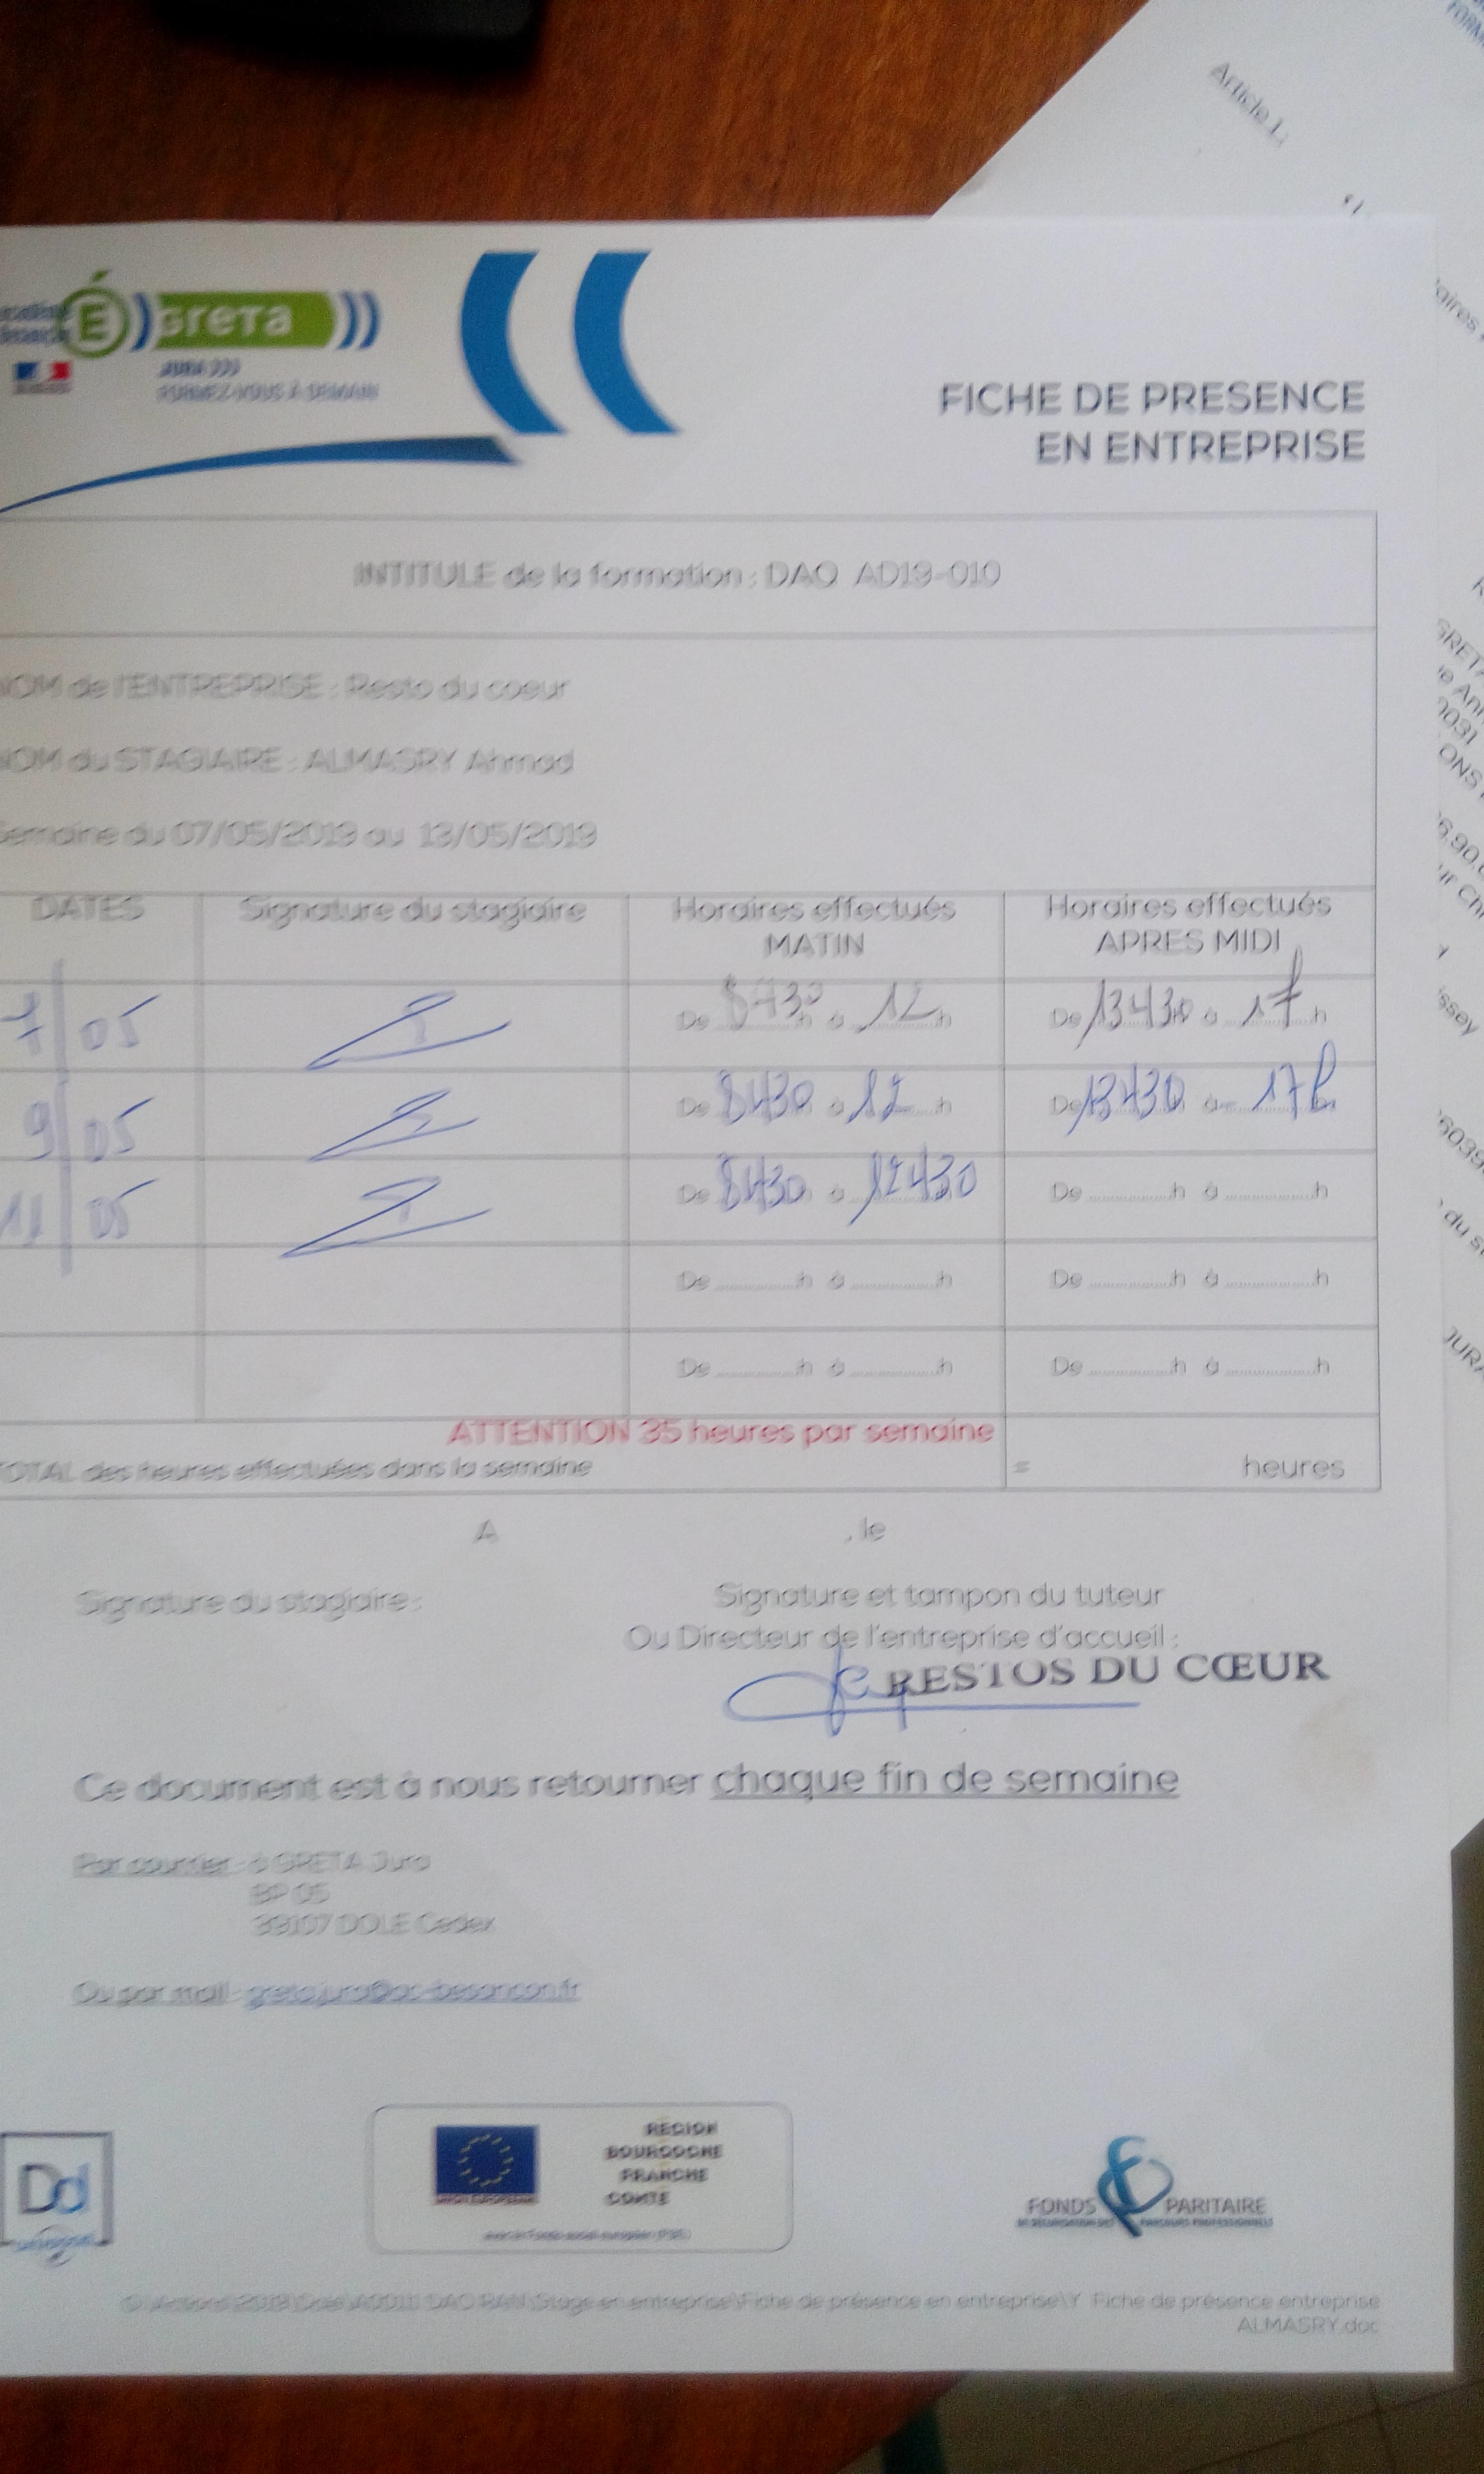 Article L.
GRETA
JURA
FORMEZ-VOUS À DEMAIN
FICHE DE PRESENCE
EN ENTREPRISE
INTITULE de la formation : DAQ AD19-010
NOM de l'ENTREPRISE : Resto du coeur
NOM du STAGIAIRE : ALMASRY Ahmad
Semaine du 07/05/2019 au 13/05/2019
DATES Signature du stagiaire Horaires effectués MATIN Horaires effectués APRES MIDI
7/05 De 8h30 h à 12 h De 13h30 h à 17 h
9/05 De 8h30 h à 12 h De 13h30 h à 17h
11/05 De 8h30 h à 12h30 De h à h
De h à h De h à h
De h à h De h à h
ATTENTION 35 heures par semaine
TOTAL des heures effectuées dans la semaine = heures
A , le
Signature du stagiaire : Signature et tampon du tuteur
Ou Directeur de l'entreprise d'accueil :
RESTOS DU CŒUR
Ce document est à nous retourner chaque fin de semaine
Par courrier : à GRETA Jura
BP 05
39107 DOLE Cedex
Ou par mail : greta.jura@ac-besancon.fr
Dd
UNION EUROPEENNE
REGION
BOURGOGNE
FRANCHE
COMTE
avec le Fonds social européen (FSE)
FONDS PARITAIRE
DE SÉCURISATION DES PARCOURS PROFESSIONNELS
Stage en entreprise\Fiche de présence en entreprise\Y Fiche de présence entreprise
ALMASRY.doc